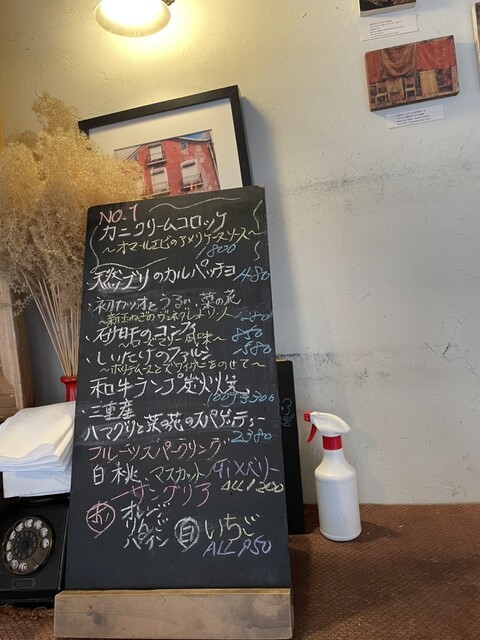 NO.1
カニクリームコロッケ
〜オマールエビのアメリケーヌソース〜
1800
天然ブリのカルパッチョ 1480
初カツオとうるい、菜の花
〜新玉ねぎのヴィネグレット
・砂肝のコンフィ 850
〜ローズマリー風味〜
・しいたけのファルシ 580
のせて〜
和牛ランプ炭火焼
100g 3300
・三重産
ハマグリと菜の花のスパゲッティー
2380
フルーツスパークリング
白桃 マスカット MIXベリー
ALL 1200
サングリア
赤 オレンジ
りんご
パイン
白 いちご
ALL 950